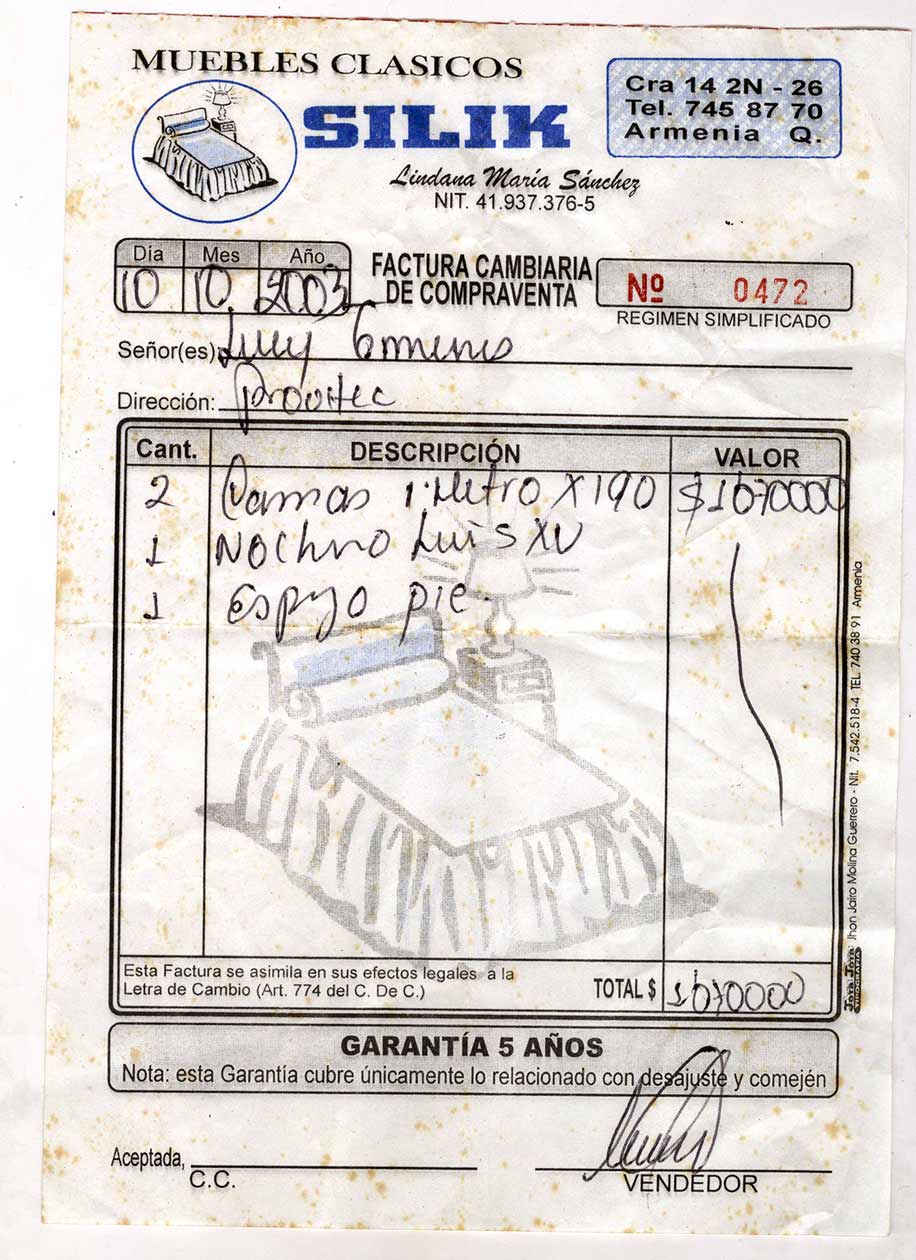 MUEBLES CLASICOS
SILIK
Cra 14 2N - 26
Tel. 745 87 70
Armenia Q.
Lindana María Sánchez
NIT. 41.937.376-5
Día Mes Año
10 10 2003
FACTURA CAMBIARIA
DE COMPRAVENTA
Nº 0472
REGIMEN SIMPLIFICADO
Señor(es)
Dirección: Provitec
Cant. DESCRIPCIÓN VALOR
2 Camas 1 Metro X 190 $1070000
1 Nochero Luis XV
1 Espejo pie.
Esta Factura se asimila en sus efectos legales a la
Letra de Cambio (Art. 774 del C. De C.)
TOTAL $ 1070000
GARANTÍA 5 AÑOS
Nota: esta Garantía cubre únicamente lo relacionado con desajuste y comején
Aceptada,
C.C.
VENDEDOR
Jhon Jairo Molina Guerrero - Nit. 7.542.518-4 TEL. 740 38 91 Armenia